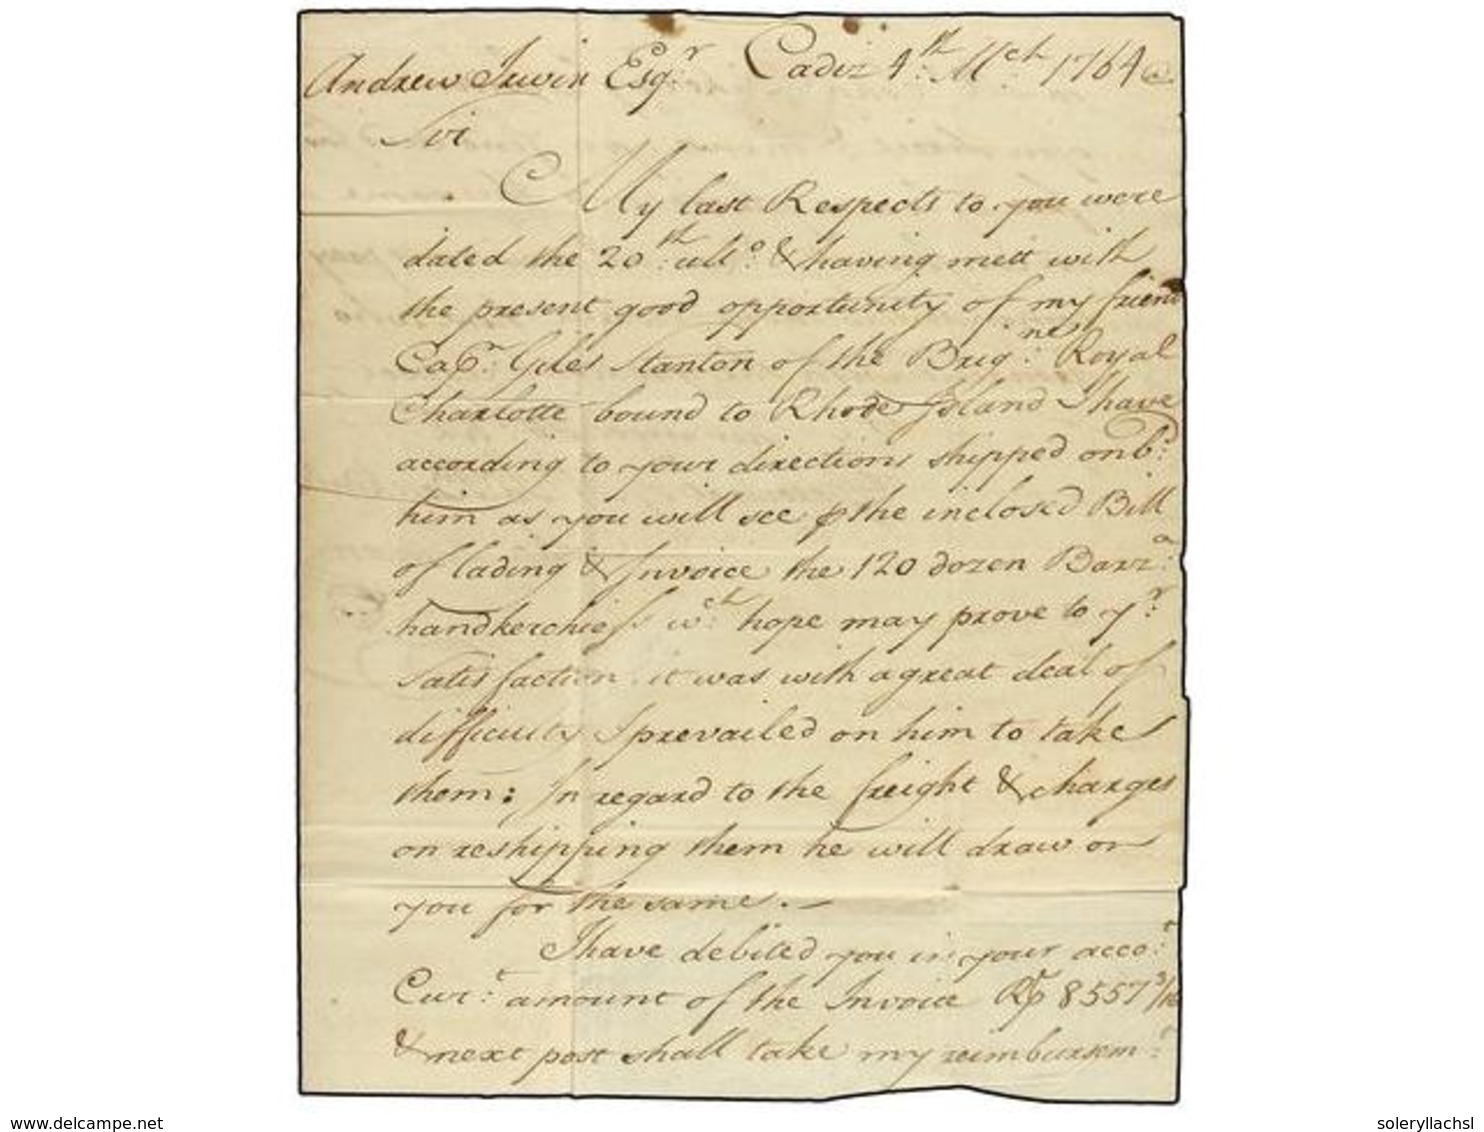 Andrew Irwin Esq.r Cadiz 4.th Mch 1764
Sir
My last Respects to you were
dated the 20.th ult.o & having mett with
the present good opportunity of my friend
Cap.n Giles Stanton of the Brig.ne Royal
Charlotte bound to Rhode Island I have
according to your directions shipped on b.d
him as you will see ⅌ the inclosed Bill
of lading & Invoice the 120 dozen Barz.a
handkerchiefs w.ch hope may prove to y.r
satisfaction it was with a great deal of
difficulty I prevailed on him to take
them: In regard to the freight & charges
on reshipping them he will draw on
you for the same.—
I have debited you in your acco.t
Cur.t amount of the Invoice Rp 8557 3/16
& next post shall take my reimbursem.t
www.delcampe.net
soleryllachsl